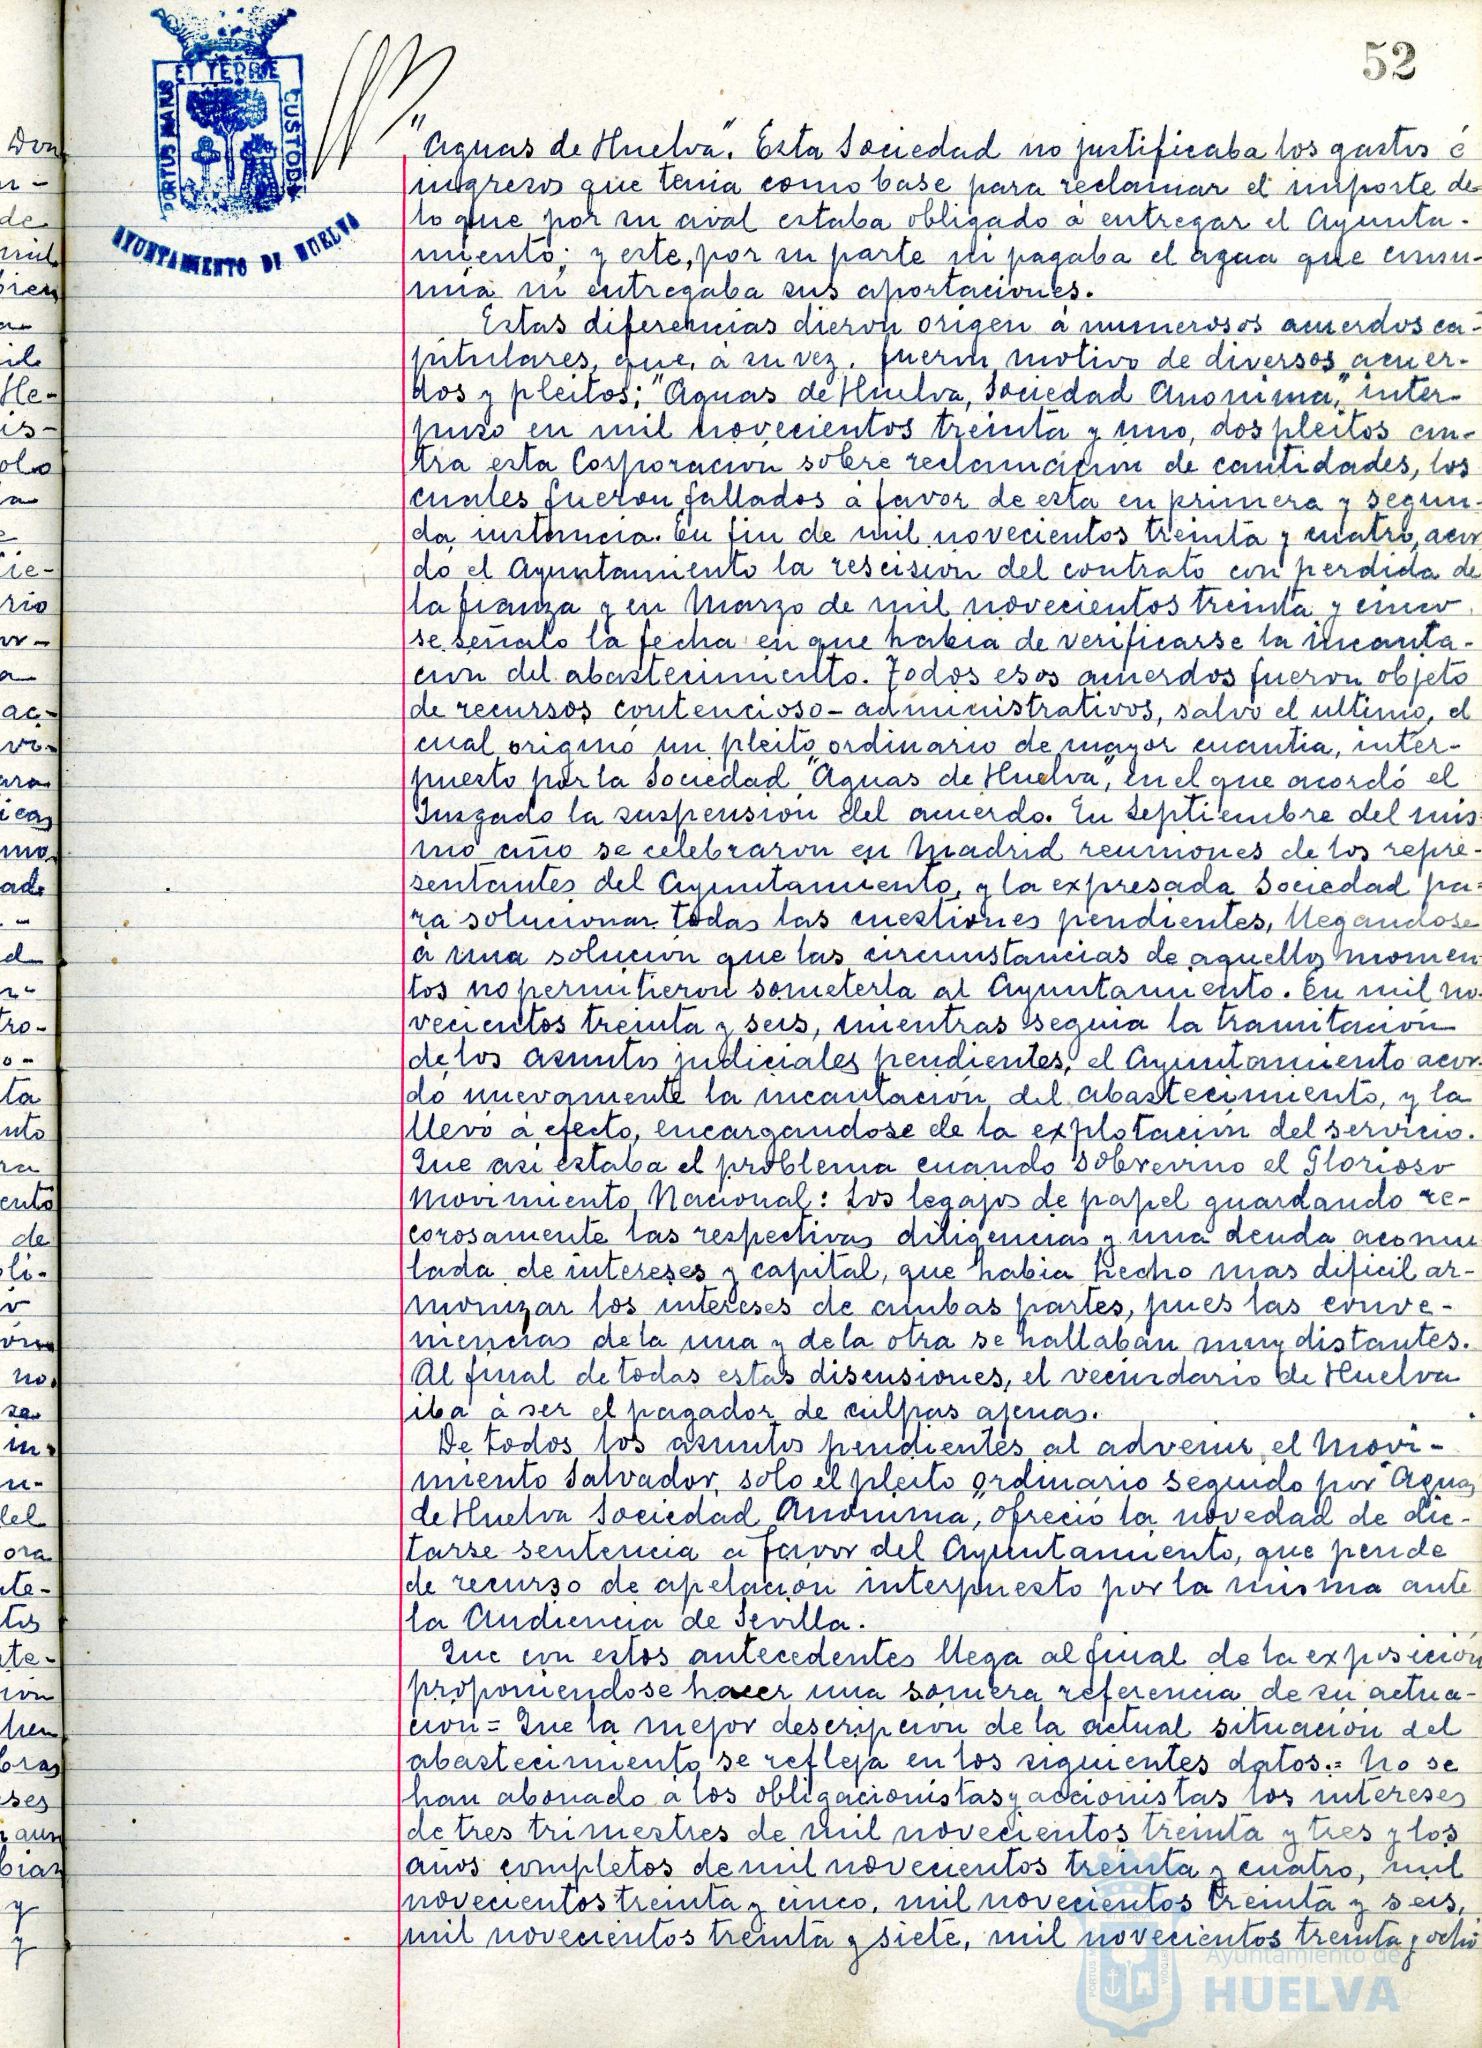 52
ET TERRE
PORTUS MARIS
CUSTODIA
AYUNTAMIENTO DE HUELVA
"Aguas de Huelva". Esta Sociedad no justificaba los gastos é
ingresos que tenia como base para reclamar el importe de
lo que por su aval estaba obligado á entregar el Ayunta-
miento; y este, por su parte ni pagaba el agua que consu-
mia ni entregaba sus aportaciones.
Estas diferencias dieron origen á numerosos acuerdos ca-
pitulares, que, á su vez, fueron motivo de diversos acuer-
dos y pleitos; "Aguas de Huelva, Sociedad Anonima," inter-
puso en mil novecientos treinta y uno, dos pleitos con-
tra esta Corporacion sobre reclamacion de cantidades, los
cuales fueron fallados á favor de esta en primera y segun-
da instancia. En fin de mil novecientos treinta y cuatro, acor
do el Ayuntamiento la rescision del contrato con perdida de
la fianza y en Marzo de mil novecientos treinta y cinco
se señalo la fecha en que habia de verificarse la incauta-
cion del abastecimiento. Todos esos acuerdos fueron objeto
de recursos contencioso-administrativos, salvo el ultimo, el
cual originó un pleito ordinario de mayor cuantia, inter-
puesto por la Sociedad "Aguas de Huelva", en el que acordó el
Juzgado la suspension del acuerdo. En Septiembre del mis-
mo año se celebraron en Madrid reuniones de los repre-
sentantes del Ayuntamiento, y la expresada Sociedad pa-
ra solucionar todas las cuestiones pendientes, llegandose
á una solucion que las circunstancias de aquellos momen
tos no permitieron someterla al Ayuntamiento. En mil no-
vecientos treinta y seis, mientras seguia la tramitacion
de los asuntos judiciales pendientes, el Ayuntamiento acor-
do nuevamente la incautacion del abastecimiento, y la
llevó á efecto, encargandose de la explotacion del servicio.
Que asi estaba el problema cuando sobrevino el Glorioso
Movimiento Nacional: Los legajos de papel guardando re-
corosamente las respectivas diligencias y una deuda acomu
lada de intereses y capital, que habia hecho mas dificil ar-
monizar los intereses de ambas partes, pues las conve-
niencias de la una y de la otra se hallaban muy distantes.
Al final de todas estas discusiones, el vecindario de Huelva
iba á ser el pagador de culpas ajenas.
De todos los asuntos pendientes al advenir el Movi-
miento Salvador, solo el pleito ordinario seguido por "Aguas
de Huelva Sociedad Anonima", ofreció la novedad de dic-
tarse sentencia a favor del Ayuntamiento, que pende
de recurso de apelacion interpuesto por la misma ante
la Audiencia de Sevilla.
Que con estos antecedentes llega al final de la exposición
proponiendose hacer una somera referencia de su actua-
cion= Que la mejor descripcion de la actual situacion del
abastecimiento se refleja en los siguientes datos.= No se
han abonado a los obligacionistas y accionistas los intereses
de tres trimestres de mil novecientos treinta y tres y los
años completos de mil novecientos treinta y cuatro, mil
novecientos treinta y cinco, mil novecientos treinta y seis,
mil novecientos treinta y siete, mil novecientos treinta y ocho
Ayuntamiento de
HUELVA